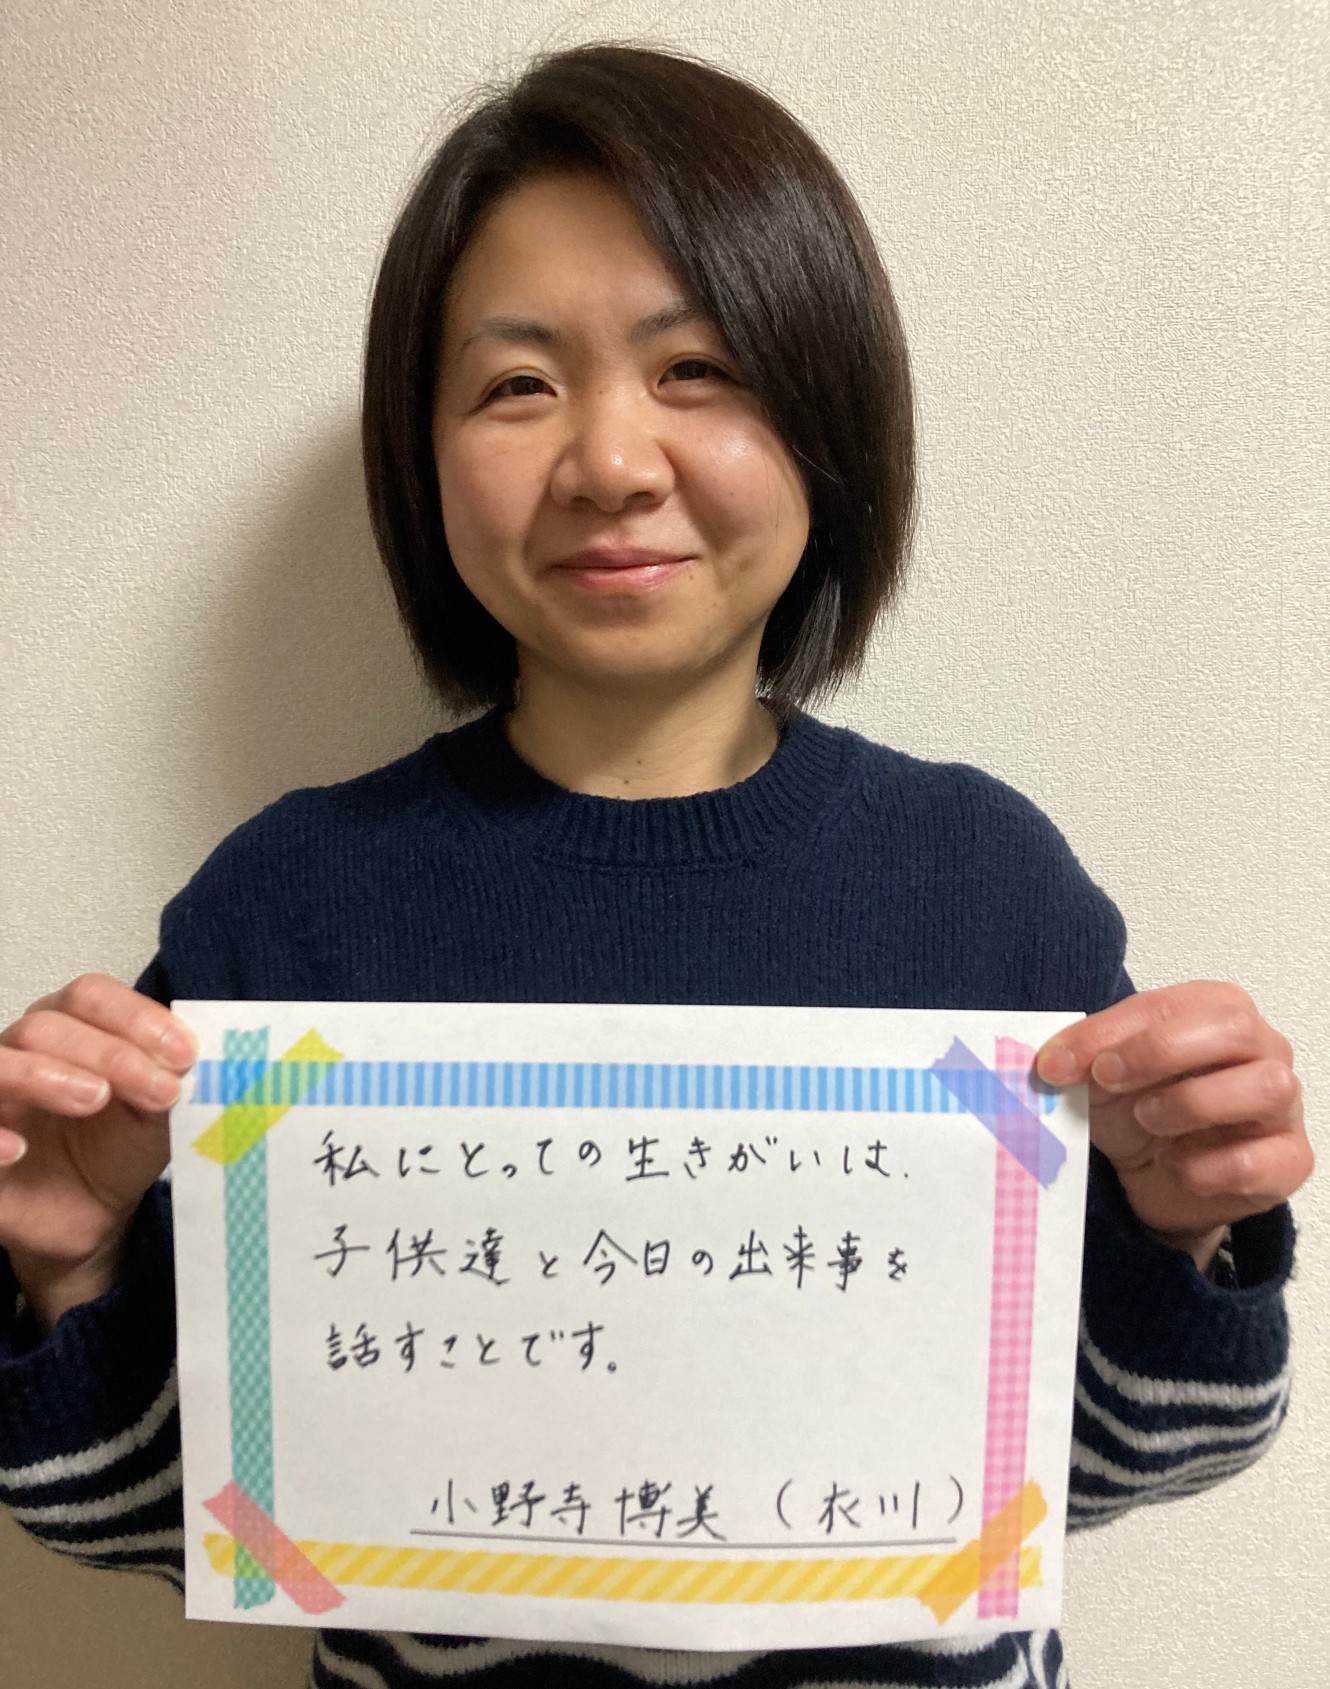 私にとっての生きがいは、
子供達と今日の出来事を
話すことです。
小野寺博美(衣川)